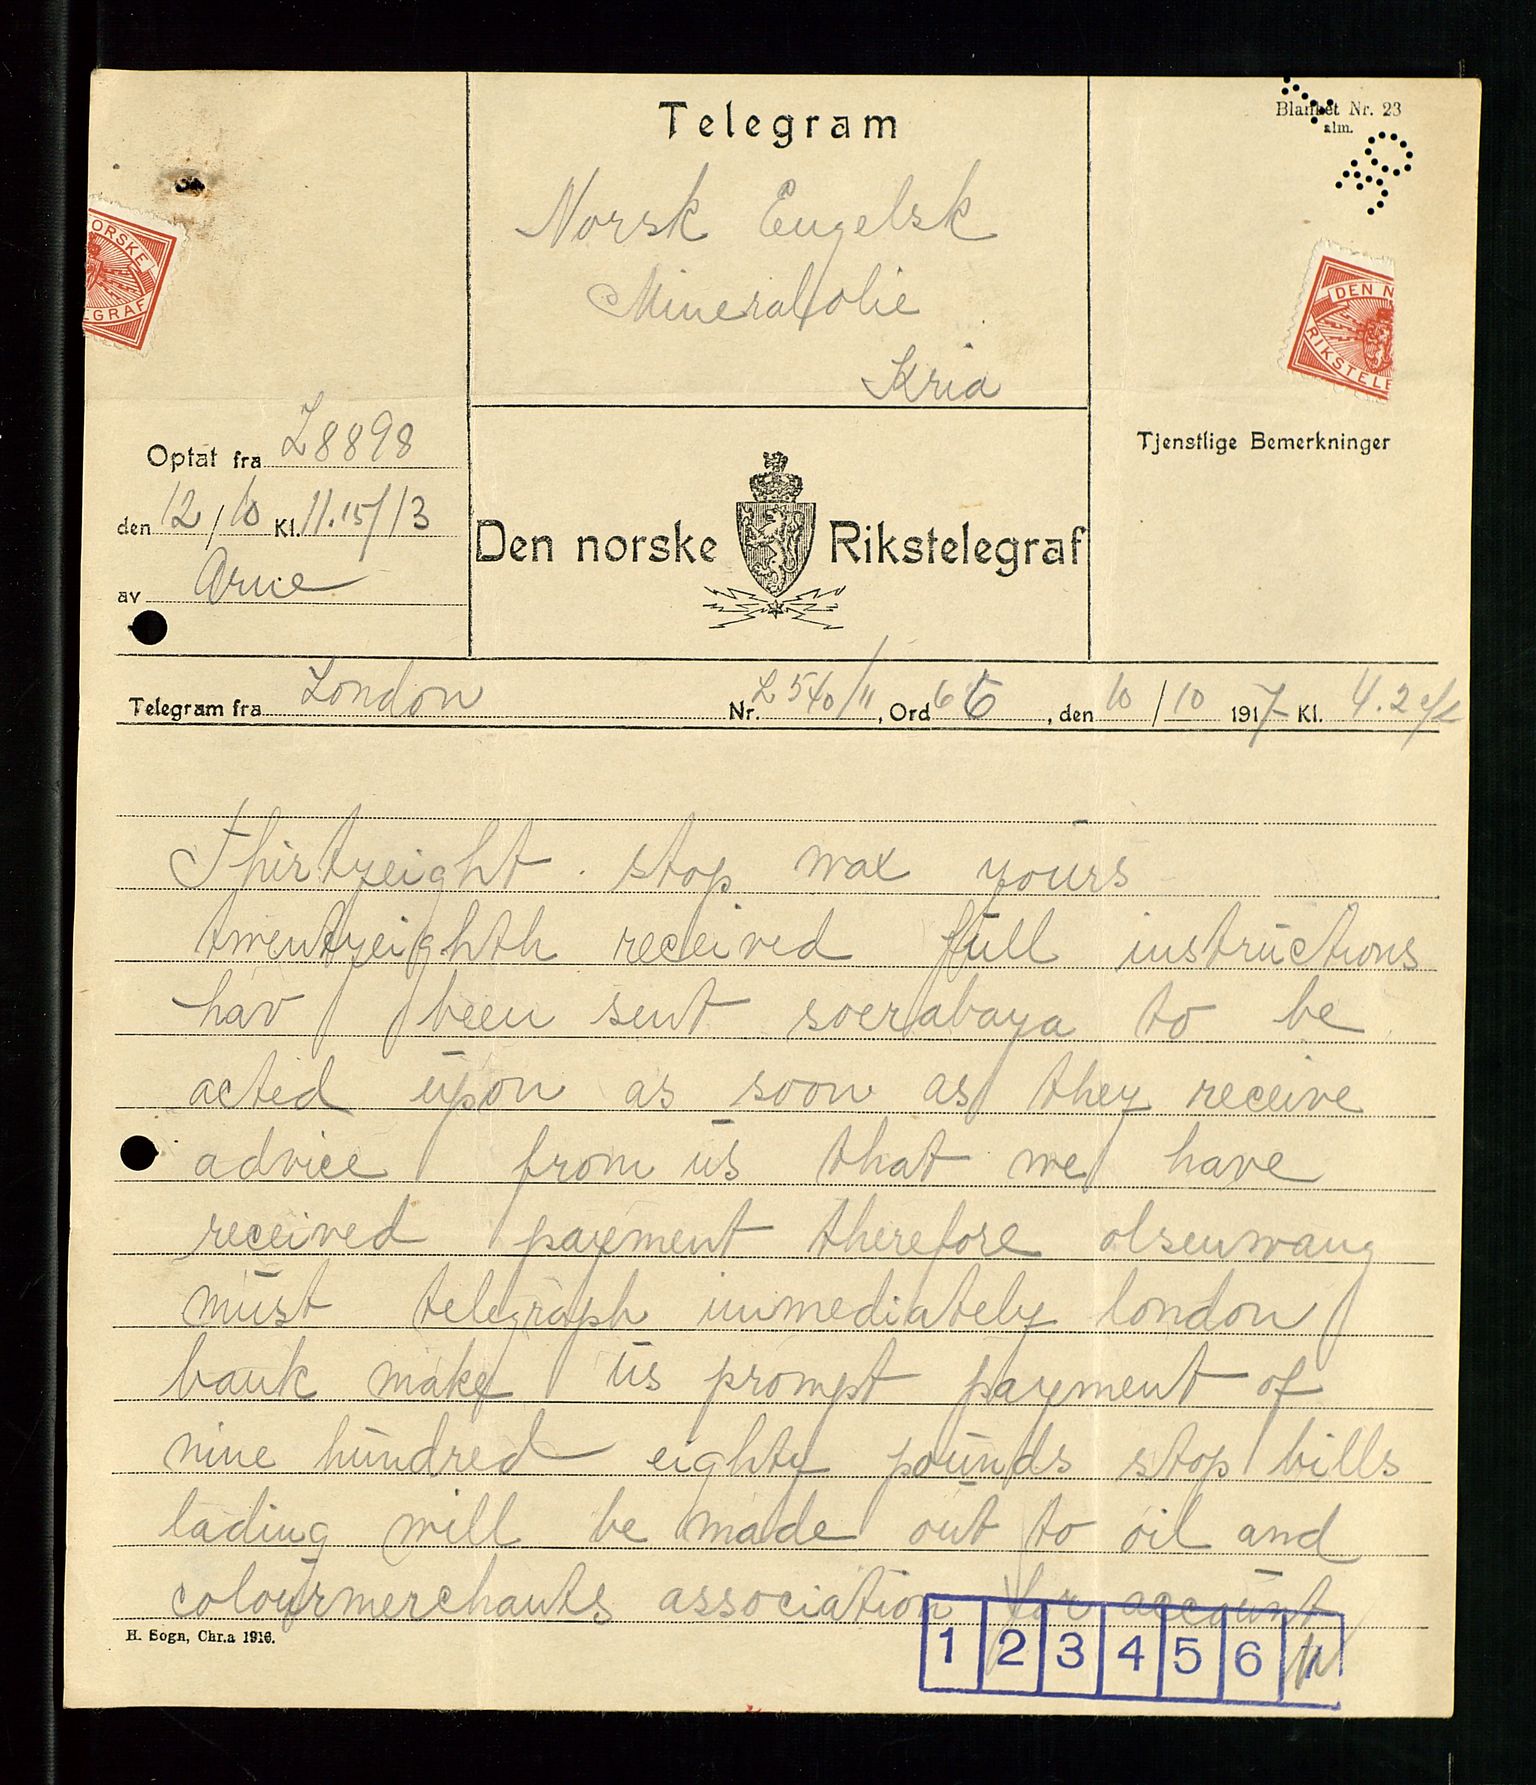 Telegram
Blanket Nr. 23
alm.
Norsk Engelsk
Mineralolie
Kria
ORSKE
EGRAF
DEN N
RIKSTELE
Optat fra L8898
den 12/10 Kl. 11.15/13
av Arne
Tjenstlige Bemerkninger
Den norske Rikstelegraf
Telegram fra London Nr. L540/11, Ord 66, den 10/10 1917 Kl. 4.2
Thirtyeight stop wax yours
twentyeighth received full instructions
hav been sent soerabaya to be
acted upon as soon as they receive
advice from us that we have
received payment therefore olsenwang
must telegraph immediately london
bank make us prompt payment of
nine hundred eighty pounds stop bills
lading will be made out to oil and
colourmerchants association for account
H. Sogn, Chr.a 1916.
1 2 3 4 5 6